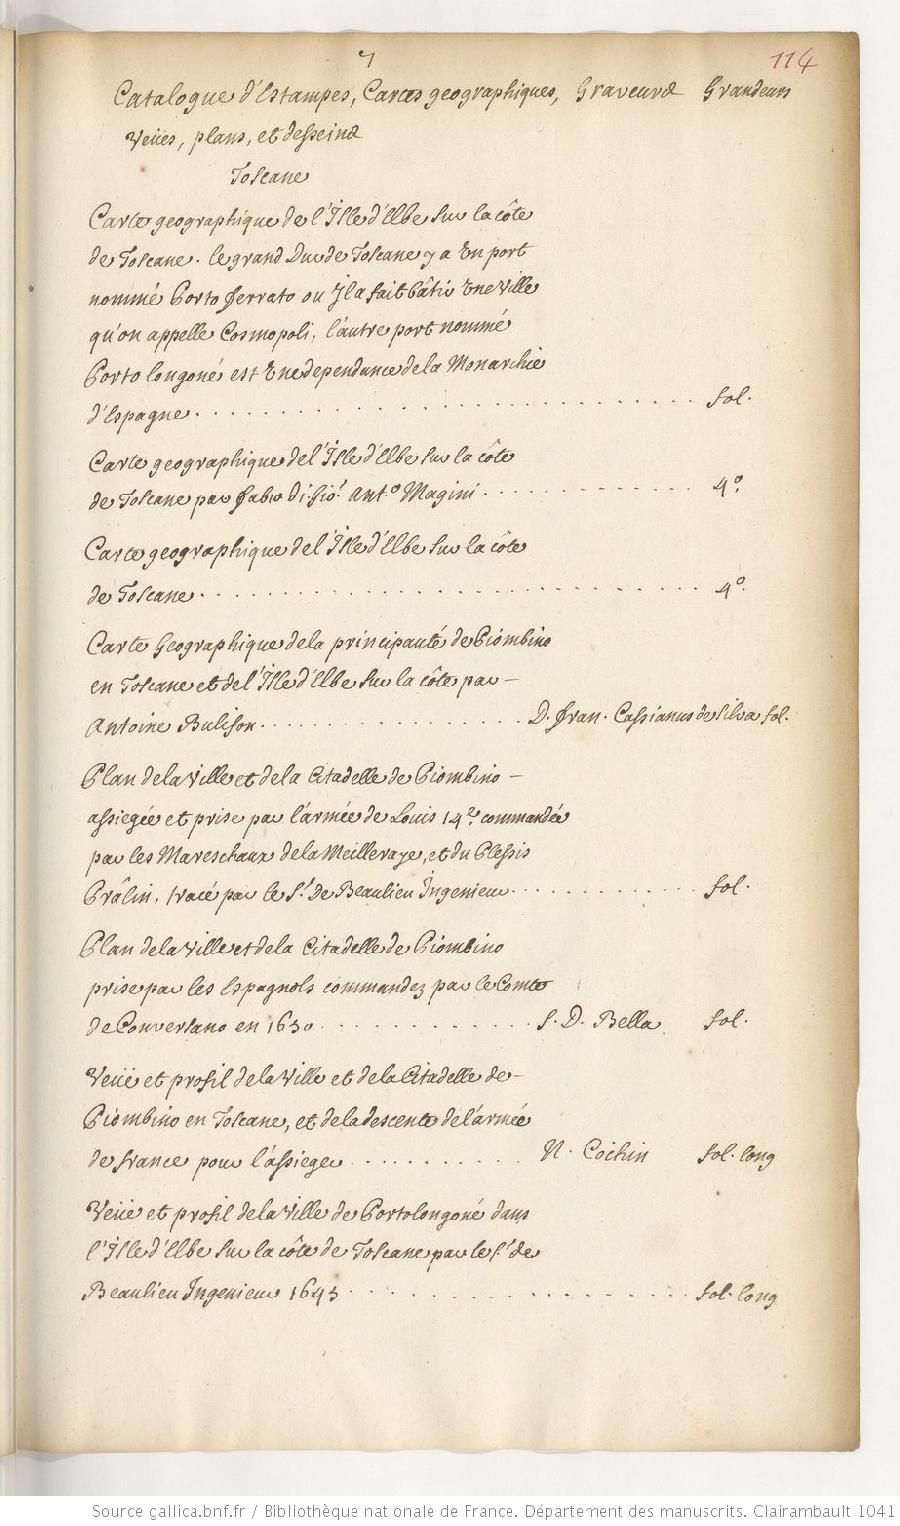 7
114
Catalogue d'Estampes, Cartes geographiques, Graveurs Grandeurs
Veües, plans, et desseins
Toscane
Carte geographique de l'Isle d'Elbe sur la côte
de Toscane. le grand Duc de Toscane y a un port
nommé Porto ferrato ou Il a fait bâtir une Ville
qu'on appelle Cosmopoli, l'autre port nommé
Porto longoné est une dependance de la Monarchie
d'Espagne . . . . . . . . . . fol.
Carte geographique de l'Isle d'Elbe sur la côte
de Toscane par fabio di gio! Ant.º Magini . . . . . . . 4º.
Carte geographique de l'Isle d'Elbe sur la côte
de Toscane . . . . . . . . . . 4º.
Carte Geographique de la principauté de Piombino
en Toscane et de l'Isle d'Elbe sur la côte par –
Antoine Bulifon . . . . . . . D. fran. Cassianus de Silva fol.
Plan de la Ville et de la Citadelle de Piombino –
assiegée et prise par l'armée de Louis 14e. commandée
par les Mareschaux de la Meilleraye, et du Plessis
Prâlin, tracé par le Sr. De Beaulieu Ingenieur . . . . . . . fol.
Plan de la Ville et de la Citadelle de Piombino
prise par les Espagnols commandez par le Comte
de Conversano en 1650 . . . . . . . S. D. Bella fol.
Veüe et profil de la Ville et de la Citadelle de –
Piombino en Toscane, et de la descente de l'armée
de france pour l'assieger . . . . . . . N. Cochin fol. long
Veüe et profil de la Ville de Portolongoné dans
l'Isle d'Elbe sur la côte de Toscane par le Sr. de
Beaulieu Ingenieur 1645 . . . . . . . fol. long
Source gallica.bnf.fr / Bibliothèque nationale de France. Département des manuscrits. Clairambault 1041